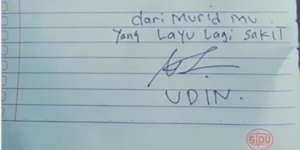 dari Murid mu
Yang Layu Lagi SakiT
UDIN.
SIDU